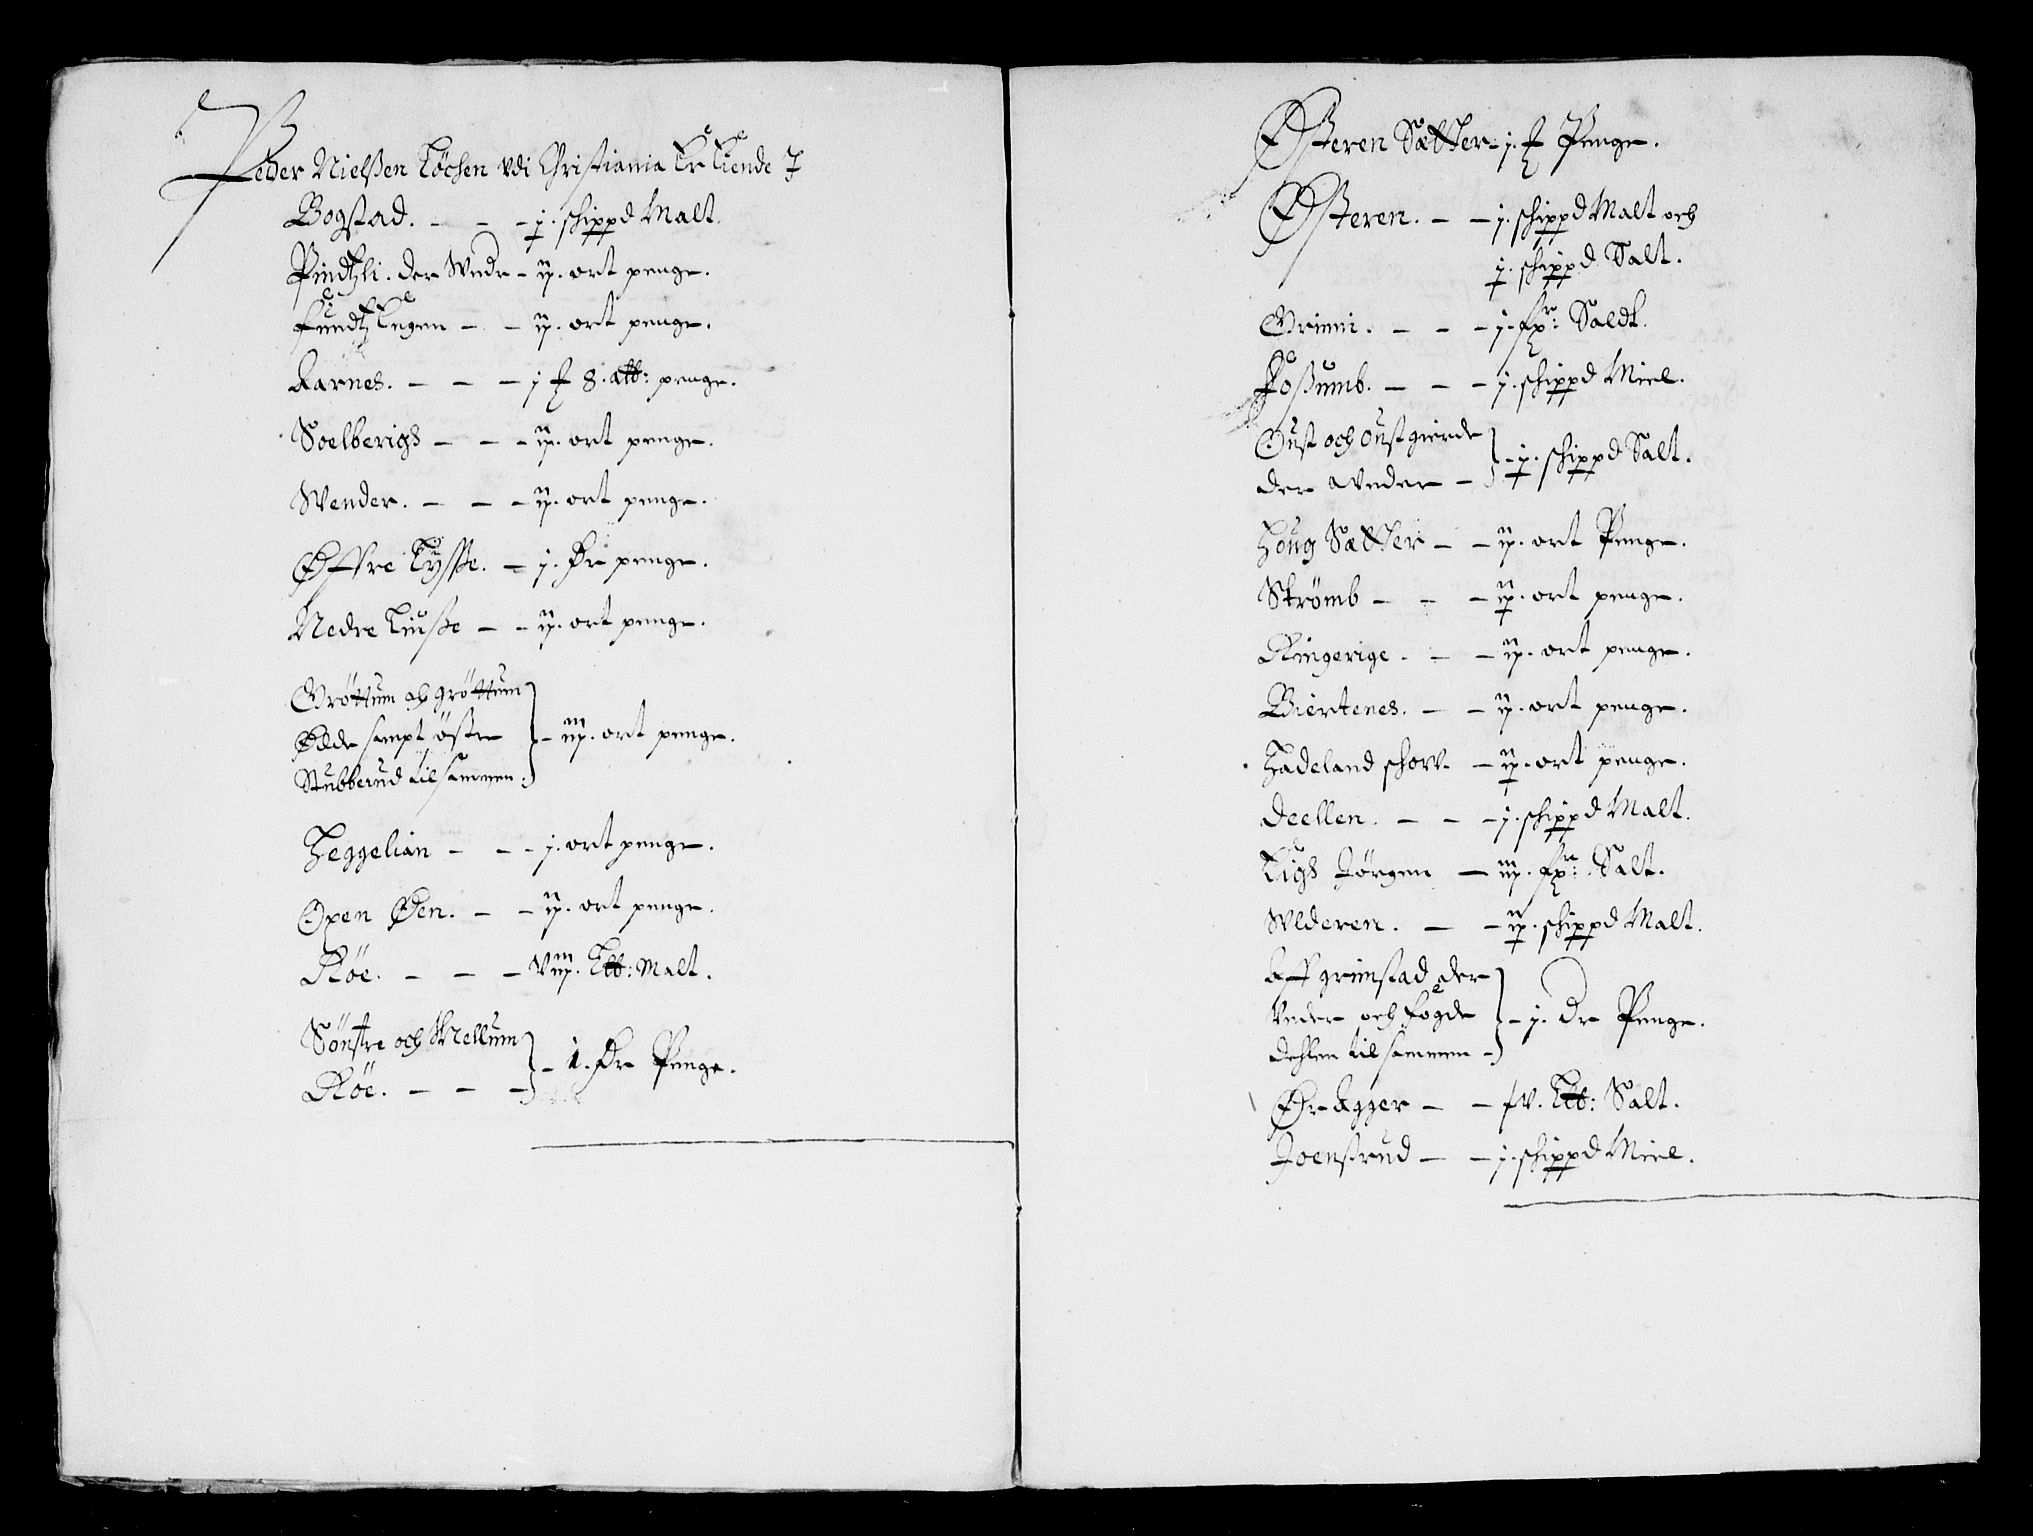 Peder Nielßen Løchen vdi Christiania Er Eiende I
Bogstad. - - - j. schippd Malt.
Pindtzli. der Wndr - ij. ort penge.
Lundtz Engen - - ij. ort penge.
Aarnes. - - - j 8. alb: penge.
Soelbergs - - - ij. ort penge.
Wender. - - - ij. ort penge.
Øffre Lysße. - j. Dr penge.
Nedre Liusße - - ij. ort penge.
Grøttum och grøttum
Øde sampt østre
Stubberud til sammen. - iij. ort penge.
Heggelian - - - j. ort penge.
Open Øen. - - ij. ort penge.
Røe. - - - Viij. Lb: Malt.
Sønstre och Mellum
Røe. - - - - 1. Dr Penge.
Østeren Sætter - j. Penge.
Østeren. - - j. schippd Malt och
j. schippd Salt.
Grinni. - - - j. fr: Saldt.
Foßumb. - - - j. schippd Miel.
Oust och Oust gierde
der wnder - - j. schippd Salt.
Houg Sætter - - ij. ort Penge.
Strømb - - - ij. ort penge.
Ringerige. - - ij. ort penge.
Biertenes. - - ij. ort penge.
Hadeland schow. - ij. ort penge.
Deellen. - - - j. schippd Malt.
Ligs Jørgen - iij. fr: Salt.
Wlderen. - - ij. schippd Malt.
Aff grimstad der
Vnder och Fogde
dehlen til sammen - - j. Dr Penge.
Ør Agger - - fv. Lb: Salt.
Joensrud - - j. schippd Miel.